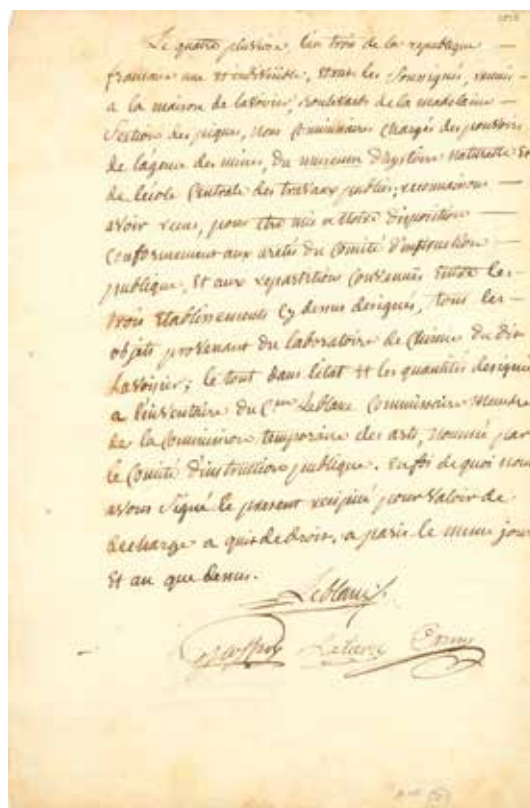 Le quatre pluviose l'an trois de la republique —
francaise une et indivisible, nous les soussignés, reunis
a la maison de lavoisier, boulevard de la madelaine —
Section des piques, nous Commissaires chargés des pouvoirs
de l'agence des mines, du museum d'hystoire naturelle et
de l'école Centrale des travaux publics, reconnaissons —
avoir recus, pour être mis a notre disposition —
conformement aux aretés du Comité d'instruction —
publique, et aux repartitions convenues entre les
trois Etablissements Cy dessus designés, tous les —
objets provenant du laboratoire de Chimie du dit
Lavoisier; le tout dans l'état et les quantités designés
a l'inventaire du Cen Leblanc Commissaire Membre
de la Commission temporaire des arts, nommé par
le Comité d'instruction publique. en foi de quoi nous
avons signé le present recipicé pour valoir de
decharge a qui de droit, a paris le meme jour
Et an que dessus.
Leblanc